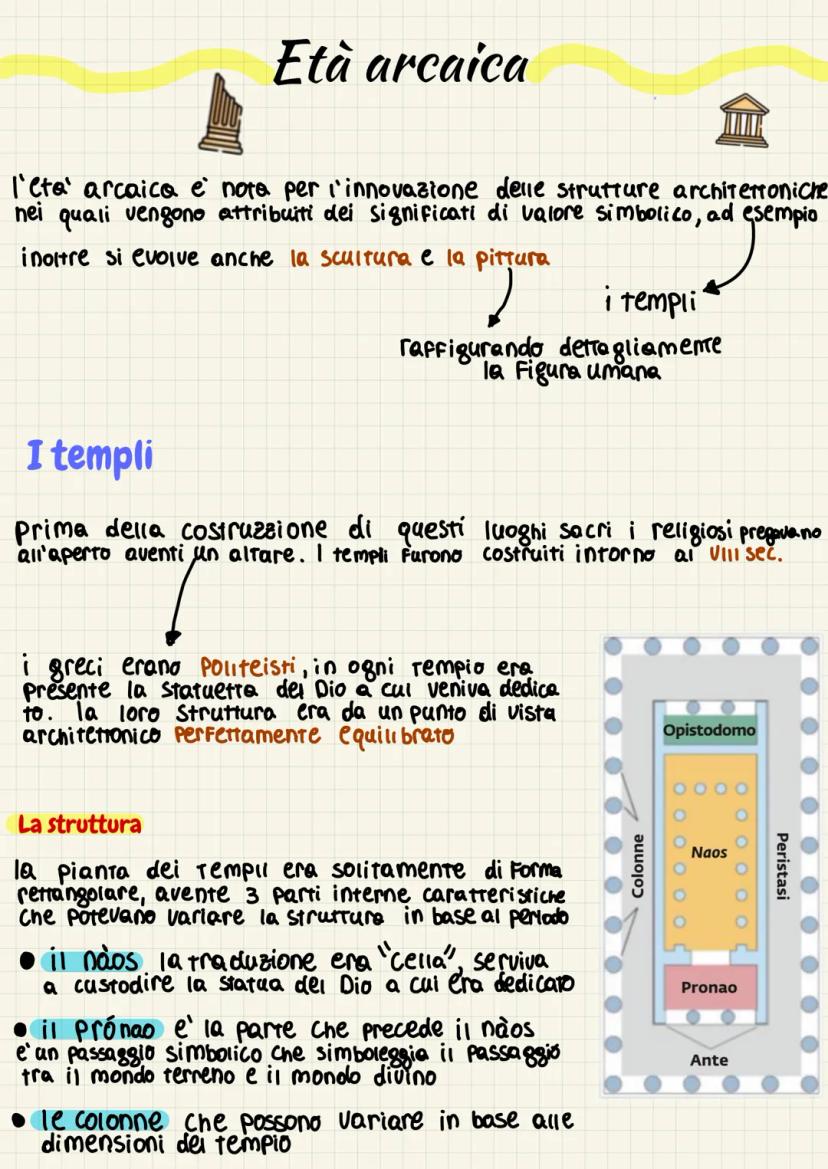 Età arcaica
l'età arcaica è nota per l'innovazione delle strutture architettoniche
nei quali vengono attribuiti dei significati di valore simbolico, ad esempio
inoltre si evolve anche la scultura e la pittura
i templi
raffigurando dettagliamente
la figura umana
I templi
prima della costruzzione di questi luoghi sacri i religiosi pregavano
all'aperto aventi un altare. I templi furono costruiti intorno al VIII sec.
i greci erano Politeisti, in ogni tempio era
presente la statuetta del Dio a cui veniva dedica
to. la loro struttura era da un punto di vista
architettonico perfettamente equilibrato
La struttura
la pianta dei templi era solitamente di forma
rettangolare, avente 3 parti interne caratteristiche
che potevano variare la struttura in base al periodo
• il nàos la traduzione era "cella", serviva
a custodire la statua del Dio a cui era dedicato
• il prónao e' la parte che precede il nàos
e' un passaggio simbolico che simboleggia il passaggio
tra il mondo terreno e il mondo divino
• le colonne che possono variare in base alle
dimensioni del tempio
Opistodomo
Colonne
Naos
Peristasi
Pronao
Ante